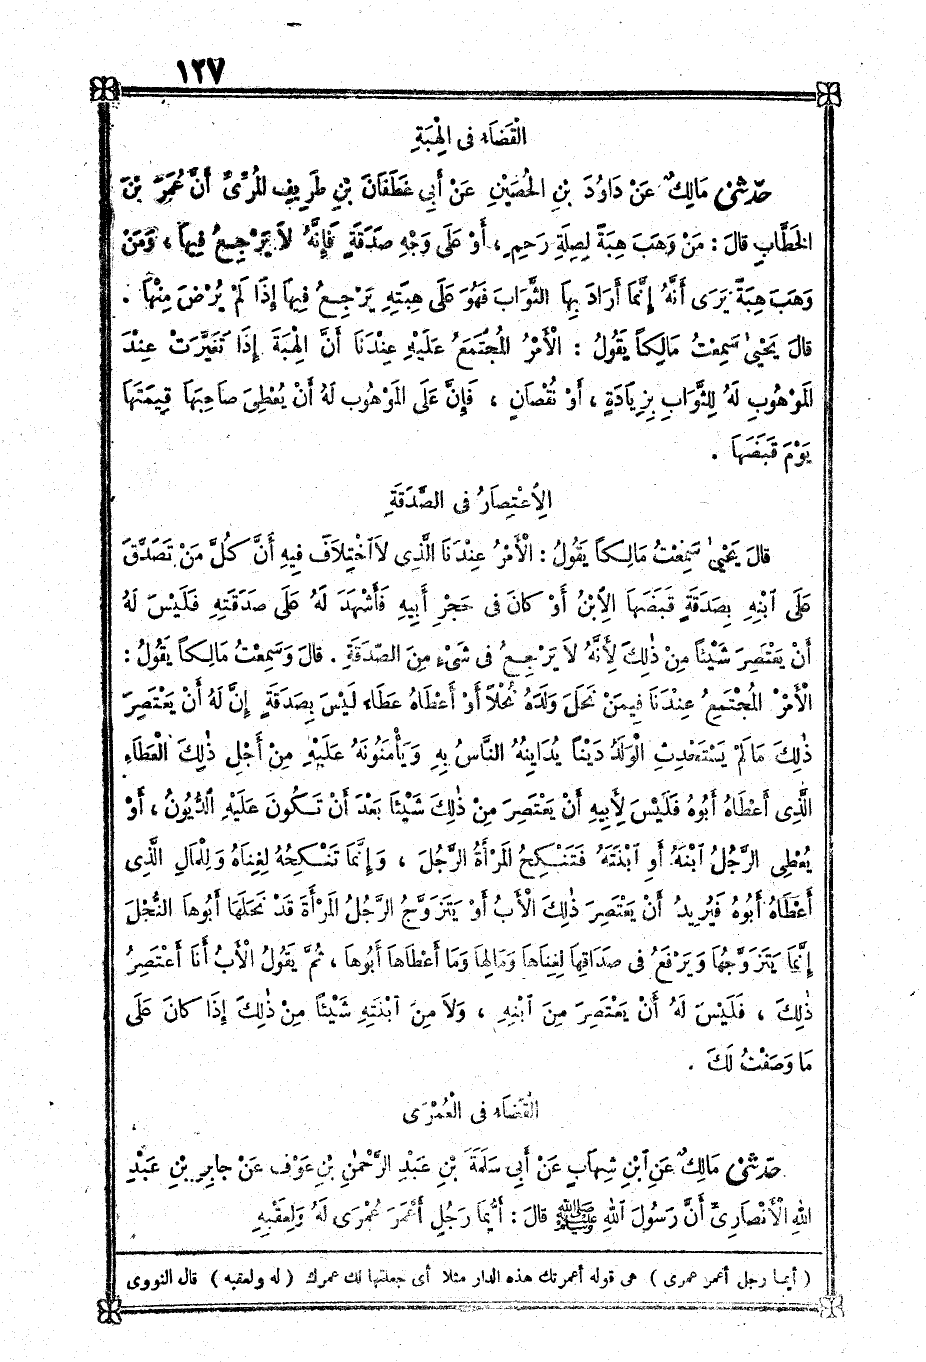 ١٢٧
الْقَضَاءُ فِى الْهِبَةِ
حَدَّثَنِى مَالِكٌ عَنْ دَاوُدَ بْنِ الْحُصَيْنِ عَنْ أَبِى غَطَفَانَ بْنِ طَرِيفٍ الْمُرِّىِّ أَنَّ عُمَرَ بْنَ
الْخَطَّابِ قَالَ : مَنْ وَهَبَ هِبَةً لِصِلَةِ رَحِمٍ ، أَوْ عَلَى وَجْهِ صَدَقَةٍ فَإِنَّهُ لاَ يَرْجِعُ فِيهَا ، وَمَنْ
وَهَبَ هِبَةً يَرَى أَنَّهُ إِنَّمَا أَرَادَ بِهَا الثَّوَابَ فَهُوَ عَلَى هِبَتِهِ يَرْجِعُ فِيهَا إِذَا لَمْ يُرْضَ مِنْهَا .
قَالَ يَحْيَى سَمِعْتُ مَالِكاً يَقُولُ : الْأَمْرُ الْمُجْتَمَعُ عَلَيْهِ عِنْدَنَا أَنَّ الْهِبَةَ إِذَا تَغَيَّرَتْ عِنْدَ
الْمَوْهُوبِ لَهُ لِلثَّوَابِ بِزِيَادَةٍ ، أَوْ نُقْصَانٍ ، فَإِنَّ عَلَى الْمَوْهُوبِ لَهُ أَنْ يُعْطِىَ صَاحِبَهَا قِيمَتَهَا
يَوْمَ قَبَضَهَا .
الْاِعْتِصَارُ فِى الصَّدَقَةِ
قَالَ يَحْيَى سَمِعْتُ مَالِكاً يَقُولُ : الْأَمْرُ عِنْدَنَا الَّذِى لاَ اخْتِلاَفَ فِيهِ أَنَّ كُلَّ مَنْ تَصَدَّقَ
عَلَى ابْنِهِ بِصَدَقَةٍ قَبَضَهَا الْاِبْنُ أَوْ كَانَ فِى حَجْرِ أَبِيهِ فَأَشْهَدَ لَهُ عَلَى صَدَقَتِهِ فَلَيْسَ لَهُ
أَنْ يَعْتَصِرَ شَيْئاً مِنْ ذٰلِكَ لِأَنَّهُ لاَ يَرْجِعُ فِى شَىْءٍ مِنَ الصَّدَقَةِ . قَالَ وَسَمِعْتُ مَالِكاً يَقُولُ :
الْأَمْرُ الْمُجْتَمَعُ عِنْدَنَا فِيمَنْ نَحَلَ وَلَدَهُ نُحْلاً أَوْ أَعْطَاهُ عَطَاءً لَيْسَ بِصَدَقَةٍ إِنَّ لَهُ أَنْ يَعْتَصِرَ
ذٰلِكَ مَا لَمْ يَسْتَحْدِثِ الْوَلَدُ دَيْناً يُدَايِنُهُ النَّاسُ بِهِ وَيَأْمَنُونَهُ عَلَيْهِ مِنْ أَجْلِ ذٰلِكَ الْعَطَاءِ
الَّذِى أَعْطَاهُ أَبُوهُ فَلَيْسَ لِأَبِيهِ أَنْ يَعْتَصِرَ مِنْ ذٰلِكَ شَيْئاً بَعْدَ أَنْ تَكُونَ عَلَيْهِ الدُّيُونُ ، أَوْ
يُعْطِى الرَّجُلُ ابْنَهُ أَوِ ابْنَتَهُ فَتَنْكِحُ الْمَرْأَةُ الرَّجُلَ ، وَإِنَّمَا تَنْكِحُهُ لِغِنَاهُ وَلِلْمَالِ الَّذِى
أَعْطَاهُ أَبُوهُ فَيُرِيدُ أَنْ يَعْتَصِرَ ذٰلِكَ الْأَبُ أَوْ يَتَزَوَّجُ الرَّجُلُ الْمَرْأَةَ قَدْ نَحَلَهَا أَبُوهَا النُّحْلَ
إِنَّمَا يَتَزَوَّجُهَا وَيَرْفَعُ فِى صَدَاقِهَا لِغِنَاهَا وَمَالِهَا وَمَا أَعْطَاهَا أَبُوهَا ، ثُمَّ يَقُولُ الْأَبُ أَنَا أَعْتَصِرُ
ذٰلِكَ ، فَلَيْسَ لَهُ أَنْ يَعْتَصِرَ مِنَ ابْنِهِ ، وَلاَ مِنَ ابْنَتِهِ شَيْئاً مِنْ ذٰلِكَ إِذَا كَانَ عَلَى
مَا وَصَفْتُ لَكَ .
الْقَضَاءُ فِى الْعُمْرَى
حَدَّثَنِى مَالِكٌ عَنِ ابْنِ شِهَابٍ عَنْ أَبِى سَلَمَةَ بْنِ عَبْدِ الرَّحْمٰنِ بْنِ عَوْفٍ عَنْ جَابِرِ بْنِ عَبْدِ
اللهِ الْأَنْصَارِىِّ أَنَّ رَسُولَ اللهِ ﷺ قَالَ : أَيُّمَا رَجُلٍ أَعْمَرَ عُمْرَى لَهُ وَلِعَقْبِهِ
( أيما رجل أعمر عمرى ) هى قوله أعمرتك هذه الدار مثلا أى جعلتها لك عمرك ( له ولعقبه ) قال النووى